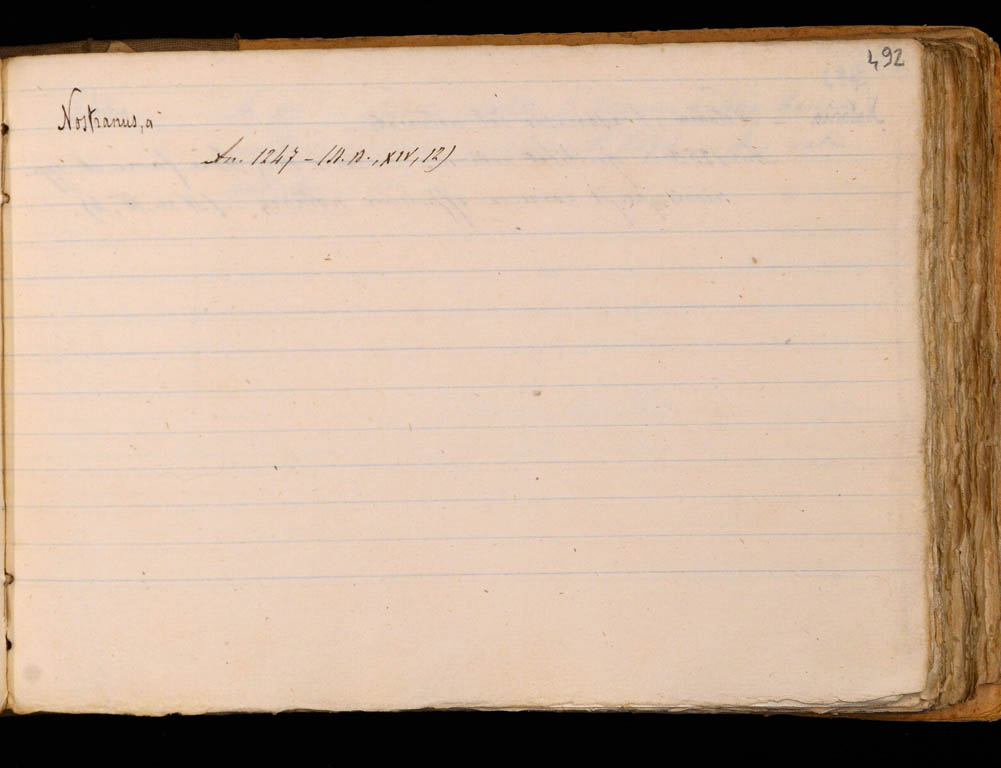 492
Nostranus, a
An. 1247 - (A. A., XIV, 12)